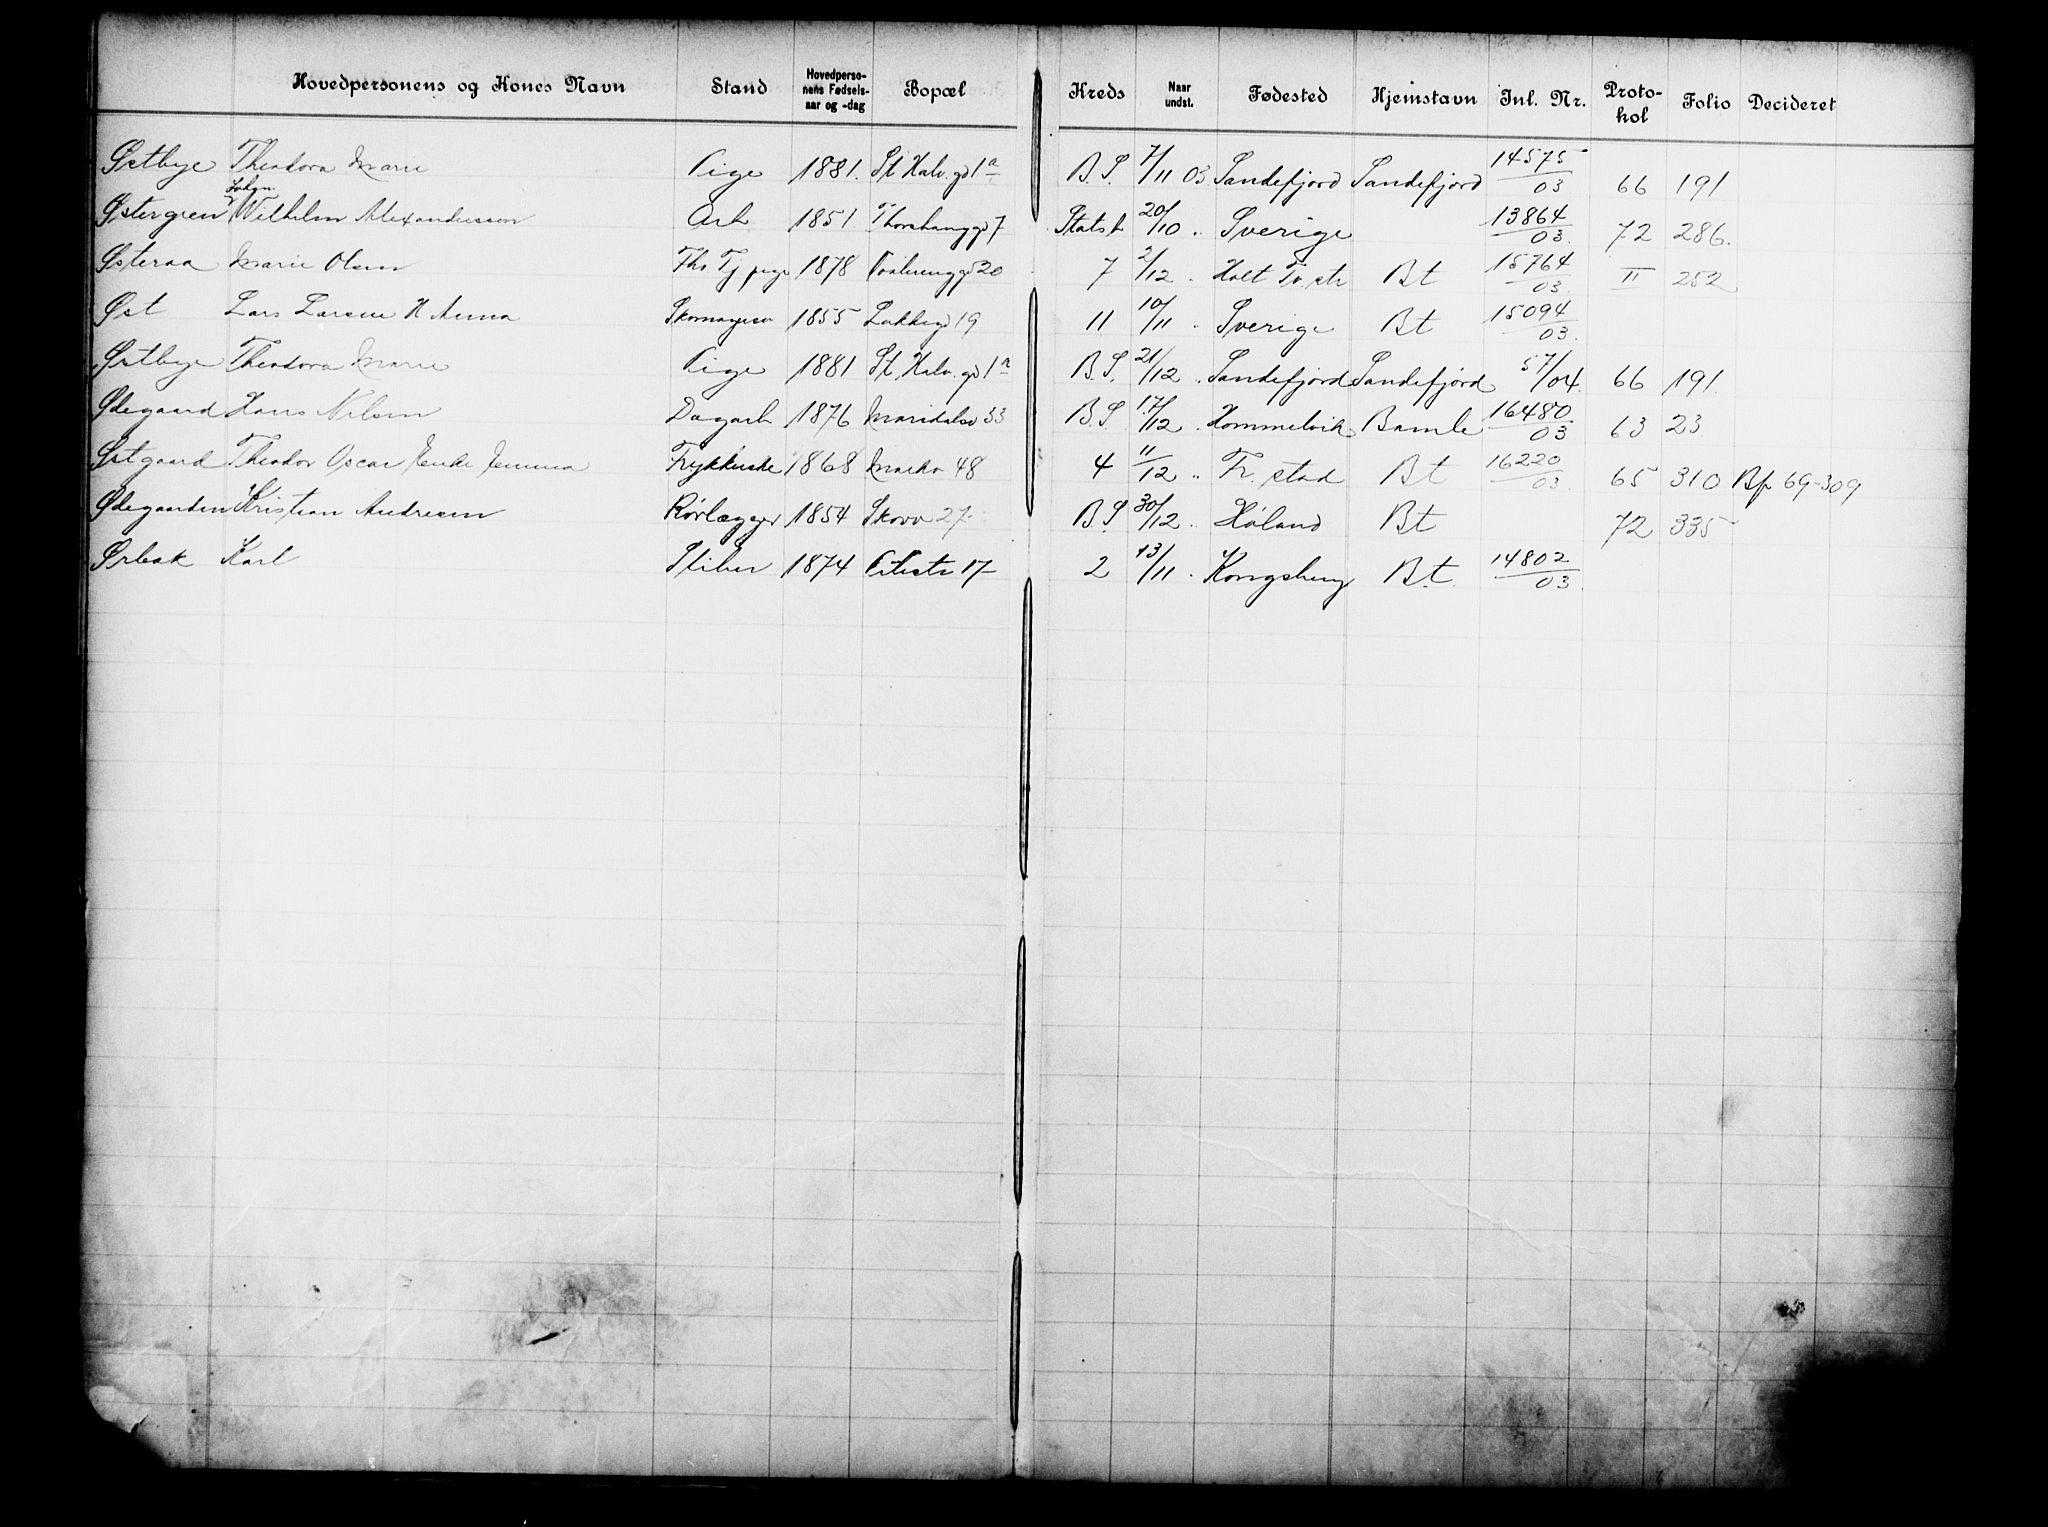 Hovedpersonens og Kones Navn Stand Hovedpersonens Fødselsaar og -dag Bopæl Kreds Naar undst. Fødested Hjemstavn Inl. Nr. Protokol Folio Decideret
Østbye Theodora Marie Pige 1881. St Halv. gd 1a B. S. 7/11 03 Sandefjord Sandefjord 14575/03 66 191
Østergren Johan Wilhelm Alexandersson Arb 1851. Thorshauggd 7 Statsb 20/10 . Sverige 13864/03. 72 286.
Østeraa Marie Olsen Ths Tj pige 1878 Vaalerenggd 20 7 2/12 . Holt Tv. str Bt 15764/03. II 252
Øst Lars Larsen H Anna Skomager 1855 Lakkegd 19 11 10/11 . Sverige Bt 15094/03.
Østbye Theodora Marie Pige 1881 St. Halv. gd 1a B. S. 21/12 . Sandefjord Sandefjord 57/04. 66 191.
Ødegaard Hans Nilsen Dagarb 1876 Maridalsv 33 B. S 17/12 . Hommelvik Bamle 16480/03 63 23
Østgaard Theodor Oscar Enke Jemima 1868 Markv 48 4 11/12 .. Fr. stad Bt 16220/03. 65 310 Bf 69-309
Ødegaarden Kristian Andresen Rørlægger 1854 Skovv 27 B. S 30/12 . Høland Bt 72 335
Ørbak Karl Sliber 1874 17 2 13/11 . Kongsberg Bt. 14802/03.